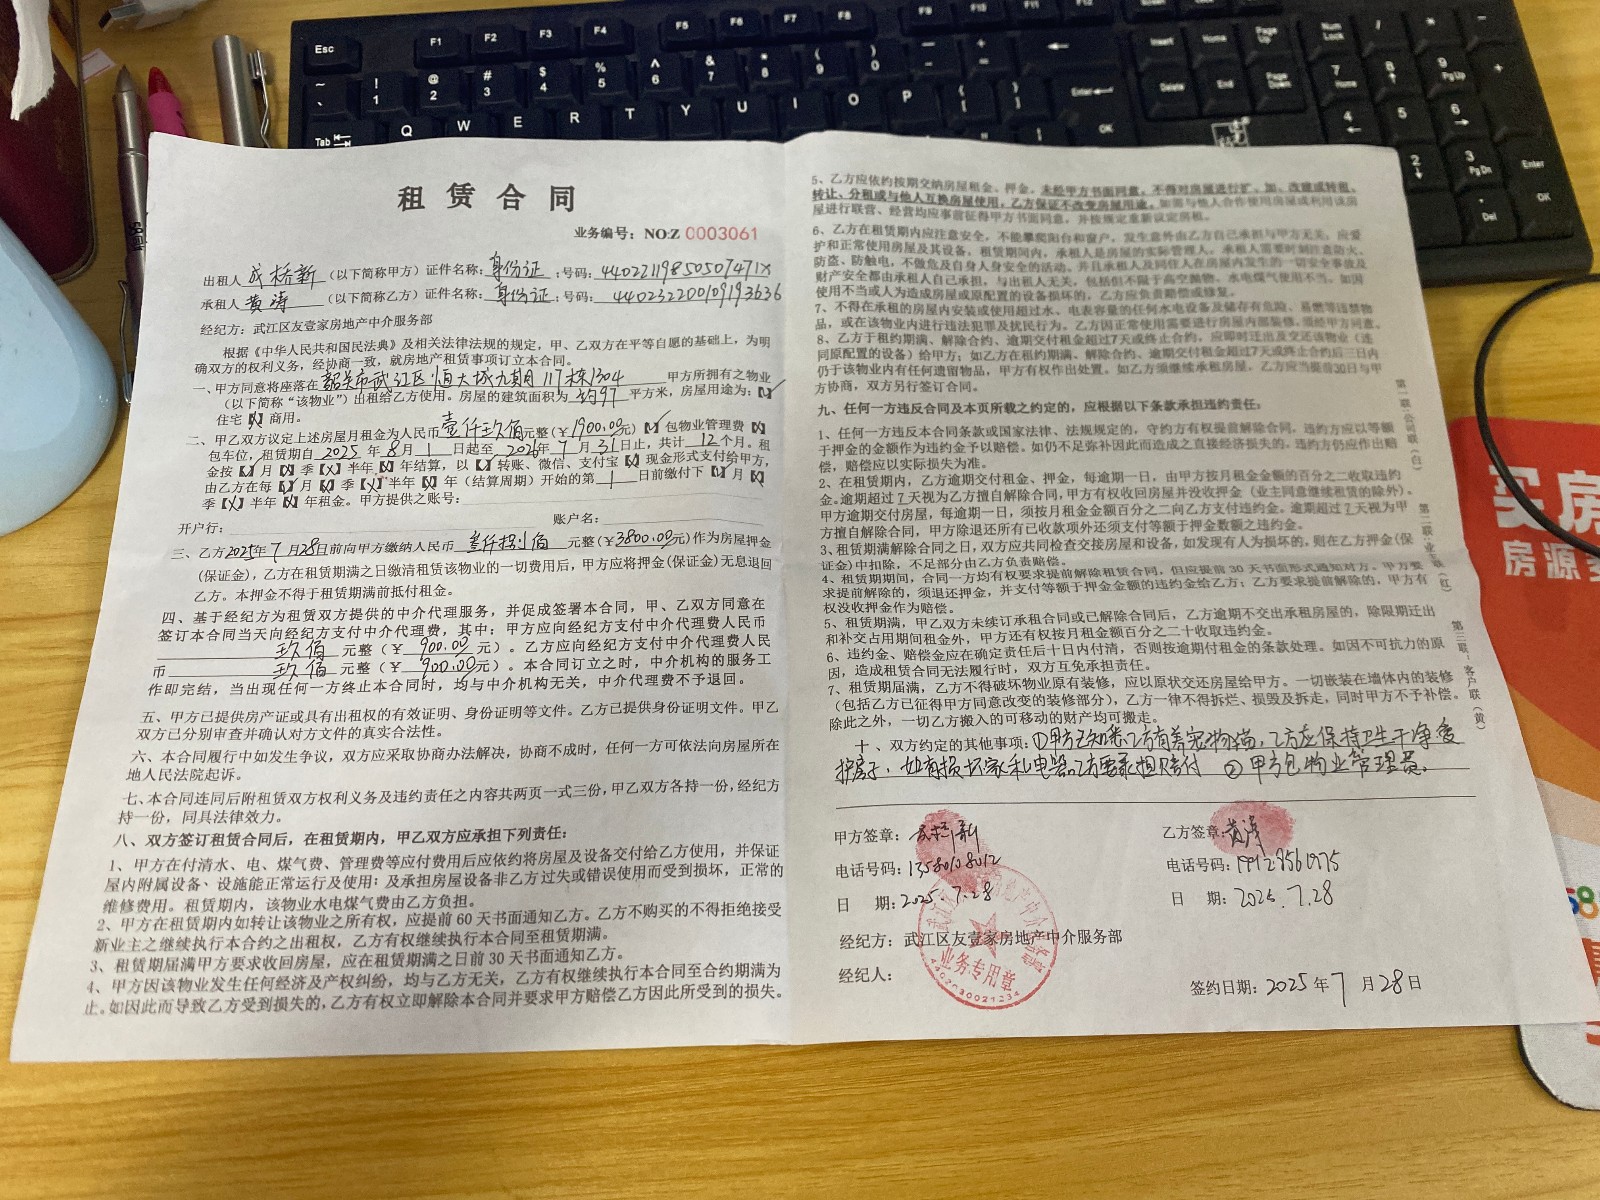 租 赁 合 同
业务编号：NO:Z 0003061
出租人 成桥新 （以下简称甲方）证件名称：身份证 ；号码：44022119850507471X
承租人 黄涛 （以下简称乙方）证件名称：身份证 ；号码：440232200109193636
经纪方：武江区友壹家房地产中介服务部
根据《中华人民共和国民法典》及相关法律法规的规定，甲、乙双方在平等自愿的基础上，为明
确双方的权利义务，经协商一致，就房地产租赁事项订立本合同。
一、甲方同意将座落在 韶关市武江区恒大城九期117栋1304 甲方所拥有之物业
（以下简称“该物业”）出租给乙方使用。房屋的建筑面积为 约97 平方米，房屋用途为：【✓】
住宅【X】商用。
二、甲乙双方议定上述房屋月租金为人民币 壹仟玖佰 元整（￥1900.00元）【✓】包物业管理费【X】
包车位，租赁期自 2025 年 8 月 1 日起至 2026 年 7 月 31 日止，共计 12 个月。租
金按【✓】月【X】季【X】半年【X】年结算，以【✓】转账、微信、支付宝【X】现金形式支付给甲方，
由乙方在每【✓】月【X】季【X】半年【X】年（结算周期）开始的第 1 日前缴付下【✓】月【X】
季【X】半年【X】年租金。甲方提供之账号：
开户行： 账户名：
三、乙方 2025年 7 月 28日前向甲方缴纳人民币 叁仟捌佰 元整（￥3800.00元）作为房屋押金
（保证金），乙方在租赁期满之日缴清租赁该物业的一切费用后，甲方应将押金（保证金）无息退回
乙方。本押金不得于租赁期满前抵付租金。
四、基于经纪方为租赁双方提供的中介代理服务，并促成签署本合同，甲、乙双方同意在
签订本合同当天向经纪方支付中介代理费，其中：甲方应向经纪方支付中介代理费人民币
玖佰 元整（￥ 900.00 元）。乙方应向经纪方支付中介代理费人民
币 玖佰 元整（￥ 900.00元）。本合同订立之时，中介机构的服务工
作即完结，当出现任何一方终止本合同时，均与中介机构无关，中介代理费不予退回。
五、甲方已提供房产证或具有出租权的有效证明、身份证等文件。乙方已提供身份证明文件。甲乙
双方已分别审查并确认对方文件的真实合法性。
六、本合同履行中如发生争议，双方应采取协商办法解决，协商不成时，任何一方可依法向房屋所在
地人民法院起诉。
七、本合同连同后附租赁双方权利义务及违约责任之内容共两页一式三份，甲乙双方各持一份，经纪方
持一份，同具法律效力。
八、双方签订租赁合同后，在租赁期内，甲乙双方应承担下列责任：
1、甲方在付清水、电、煤气费、管理费等应付费用后应依约将房屋及设备交付给乙方使用，并保证
屋内附属设备、设施能正常运行及使用；及承担房屋设备非乙方过失或错误使用而受到损坏，正常的
维修费用。租赁期内，该物业水电煤气费由乙方负担。
2、甲方在租赁期内如转让该物业之所有权，应提前 60 天书面通知乙方。乙方不购买的不得拒绝接受
新业主之继续执行本合约之出租权，乙方有权继续执行本合同至租赁期满。
3、租赁期届满甲方要求收回房屋，应在租赁期满之日前 30 天书面通知乙方。
4、甲方因该物业发生任何经济及产权纠纷，均与乙方无关，乙方有权继续执行本合同至合约期满为
止。如因此而导致乙方受到损失的，乙方有权立即解除本合同并要求甲方赔偿乙方因此所受到的损失。
5、乙方应依约按期交纳房屋租金、押金，未经甲方书面同意，不得对房屋进行扩、加、改建或转租、
转让、分租或与他人互换房屋使用，乙方保证不改变房屋用途，如需与他人合作使用房屋或利用该房
屋进行联营、经营均应事前征得甲方书面同意，并按规定重新议定房租。
6、乙方在租赁期内应注意安全，不能攀爬阳台和窗户，发生意外由乙方自己承担与甲方无关，应爱
护和正常使用房屋及其设备，租赁期间内，承租人是房屋的实际管理人，承租人需要时刻注意防火、
防盗、防触电，不做危及自身人身安全的活动，并且承租人及同住人在房屋内发生的一切安全事故及
财产安全都由承租人自己承担，与出租人无关，包括但不限于高空抛物、水电煤气使用不当。如因
使用不当或人为造成房屋或原配置的设备损坏的，乙方应负责赔偿或修复。
7、不得在承租的房屋内安装或使用超过水、电表容量的任何水电设备及储存有危险、易燃等违禁物
品，或在该物业内进行违法犯罪及扰民行为。乙方因正常使用需要进行房屋内部装修，须经甲方同意。
8、乙方于租约期满、解除合约、逾期交付租金超过7天或终止合约，应即时迁出及交还该物业（连
同原配置的设备）给甲方；如乙方在租约期满、解除合约、逾期交付租金超过7天或终止合约后三日内
仍于该物业内有任何遗留物品，甲方有权作出处置。如乙方须继续承租房屋，乙方应当提前30日与甲
方协商，双方另行签订合同。
九、任何一方违反合同及本页所载之约定的，应根据以下条款承担违约责任：
1、任何一方违反本合同条款或国家法律、法规规定的，守约方有权提前解除合同，违约方应以等额
于押金的金额作为违约金予以赔偿。如仍不足弥补因此而造成之直接经济损失的，违约方仍应作出赔
偿，赔偿应以实际损失为准。
2、在租赁期内，乙方逾期交付租金、押金，每逾期一日，由甲方按月租金金额的百分之二收取违约
金。逾期超过 7 天视为乙方擅自解除合同，甲方有权收回房屋并没收押金（业主同意继续租赁的除外）。
甲方逾期交付房屋，每逾期一日，须按月租金金额百分之二向乙方支付违约金。逾期超过 7 天视为甲
方擅自解除合同，甲方除退还所有已收款项外还须支付等额于押金数额之违约金。
3、租赁期满解除合同之日，双方应共同检查交接房屋和设备，如发现有人为损坏的，则在乙方押金（保
证金）中扣除，不足部分由乙方负责赔偿。
4、租赁期期间，合同一方均有权要求提前解除租赁合同，但应提前 30 天书面形式通知对方。甲方要
求提前解除的，须退还押金，并支付等额于押金金额的违约金给乙方；乙方要求提前解除的，甲方有
权没收押金作为赔偿。
5、租赁期满，甲乙双方未续订承租合同或已解除合同后，乙方逾期不交出承租房屋的，除限期迁出
和补交占用期间租金外，甲方还有权按月租金额百分之二十收取违约金。
6、违约金、赔偿金应在确定责任后十日内付清，否则按逾期付租金的条款处理。如因不可抗力的原
因，造成租赁合同无法履行时，双方互免承担责任。
7、租赁期届满，乙方不得破坏物业原有装修，应以原状交还房屋给甲方。一切嵌装在墙体内的装修
（包括乙方已征得甲方同意改变的装修部分），乙方一律不得拆烂、损毁及拆走，同时甲方不予补偿。
除此之外，一切乙方搬入的可移动的财产均可搬走。
十、双方约定的其他事项：①甲方已知悉乙方有养宠物猫，乙方应保持卫生干净爱
护房子，如有损坏家私电器乙方需承担赔付 ②甲方包物业管理费。
甲方签章：成桥新 乙方签章：黄涛
电话号码：13580108012 电话号码：19128561975
日 期：2025.7.28 日 期：2025.7.28
经纪方：武江区友壹家房地产中介服务部
经纪人：
签约日期：2025 年 7 月 28 日
业务专用章
4402030021234
第一联：公司联（白）
第二联：业主联（红）
第三联：客户联（黄）
买房
房源
58
Esc F1 F2 F3 F4 F5 F6 F7 F8 F9 F10 F11 F12
Insert Home Page Up Num Lock
Delete End Page Down
Tab Q W E R T Y U I O P
Enter
OK